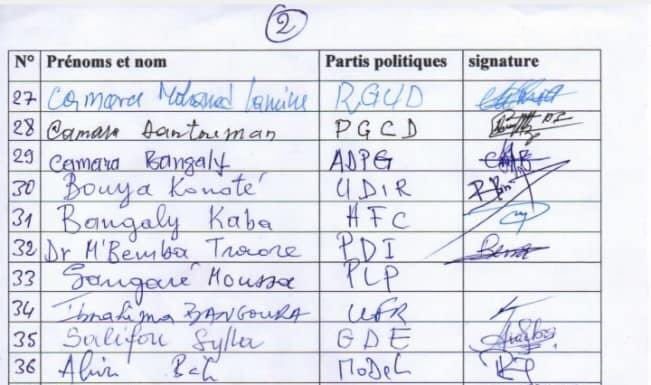 2
N° Prénoms et nom Partis politiques signature
27 Camara Mohamed Lamine RGUD
28 Camara Santouman PGCD
29 Camara Bangaly ADPG
30 Bouya Konaté UDIR
31 Bangaly Kaba HFC
32 Dr M'Bemba Traore PDI
33 Sangaré Moussa PLP
34 Ibrahima BANGOURA UFR
35 Salifou Sylla GDE
36 Aliou Bah MoDeL